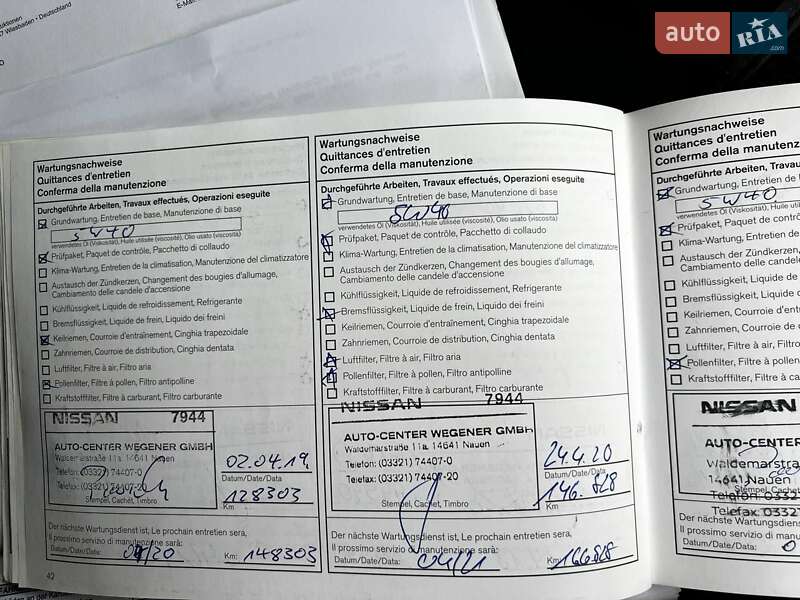 7 Wiesbaden - Deutschland
E-Mail
auto RIA .com
Wartungsnachweise
Quittances d'entretien
Conferma della manutenzione
Durchgeführte Arbeiten, Travaux effectués, Operazioni eseguite
Grundwartung, Entretien de base, Manutenzione di base
5W40
verwendetes Öl (Viskosität), Huile utilisée (viscosité), Olio usato (viscosità)
Prüfpaket, Paquet de contrôle, Pacchetto di collaudo
Klima-Wartung, Entretien de la climatisation, Manutenzione del climatizzatore
Austausch der Zündkerzen, Changement des bougies d'allumage,
Cambiamento delle candele d'accensione
Kühlflüssigkeit, Liquide de refroidissement, Refrigerante
Bremsflüssigkeit, Liquide de frein, Liquido dei freini
Keilriemen, Courroie d'entraînement, Cinghia trapezoidale
Zahnriemen, Courroie de distribution, Cinghia dentata
Luftfilter, Filtre à air, Filtro aria
Pollenfilter, Filtre à pollen, Filtro antipolline
Kraftstofffilter, Filtre à carburant, Filtro carburante
NISSAN 7944
AUTO-CENTER WEGENER GMBH
Waldemarstraße 11a, 14641 Nauen
Telefon: (03321) 74407-0
Telefax: (03321) 74407-20
Stempel, Cachet, Timbro
02.04.19
Datum/Date/Data
128303
Km
Der nächste Wartungsdienst ist, Le prochain entretien sera,
Il prossimo servizio di manutenzione sarà:
Datum/Date/Data: 04/20 Km: 148303
42
Wartungsnachweise
Quittances d'entretien
Conferma della manutenzione
Durchgeführte Arbeiten, Travaux effectués, Operazioni eseguite
Grundwartung, Entretien de base, Manutenzione di base
5W40
verwendetes Öl (Viskosität), Huile utilisée (viscosité), Olio usato (viscosità)
Prüfpaket, Paquet de contrôle, Pacchetto di collaudo
Klima-Wartung, Entretien de la climatisation, Manutenzione del climatizzatore
Austausch der Zündkerzen, Changement des bougies d'allumage,
Cambiamento delle candele d'accensione
Kühlflüssigkeit, Liquide de refroidissement, Refrigerante
Bremsflüssigkeit, Liquide de frein, Liquido dei freini
Keilriemen, Courroie d'entraînement, Cinghia trapezoidale
Zahnriemen, Courroie de distribution, Cinghia dentata
Luftfilter, Filtre à air, Filtro aria
Pollenfilter, Filtre à pollen, Filtro antipolline
Kraftstofffilter, Filtre à carburant, Filtro carburante
NISSAN 7944
AUTO-CENTER WEGENER GMBH
Waldemarstraße 11a, 14641 Nauen
Telefon: (03321) 74407-0
Telefax: (03321) 74407-20
Stempel, Cachet, Timbro
24.4.20
Datum/Date/Data
146.828
Km
Der nächste Wartungsdienst ist, Le prochain entretien sera,
Il prossimo servizio di manutenzione sarà:
Datum/Date/Data: 04/21 Km: 166828
Wartungsnachweise
Quittances d'entretien
Conferma della manutenzione
Durchgeführte Arbeiten, Travaux
Grundwartung, Entretien de
5W40
verwendetes Öl (Viskosität), Huile utilisée
Prüfpaket, Paquet de contrôle,
Klima-Wartung, Entretien de la
Austausch der Zündkerzen,
Cambiamento delle candele
Kühlflüssigkeit, Liquide de
Bremsflüssigkeit, Liquide
Keilriemen, Courroie
Zahnriemen, Courroie de
Luftfilter, Filtre à air,
Pollenfilter, Filtre à pollen,
Kraftstofffilter, Filtre à
NISSAN
AUTO-CENTER
14641 Nauen
Telefon: 0332
Telefax: 0332
Stempel, Cachet,
Der nächste Wartungsdienst
Il prossimo servizio di
Datum/Date/Data: